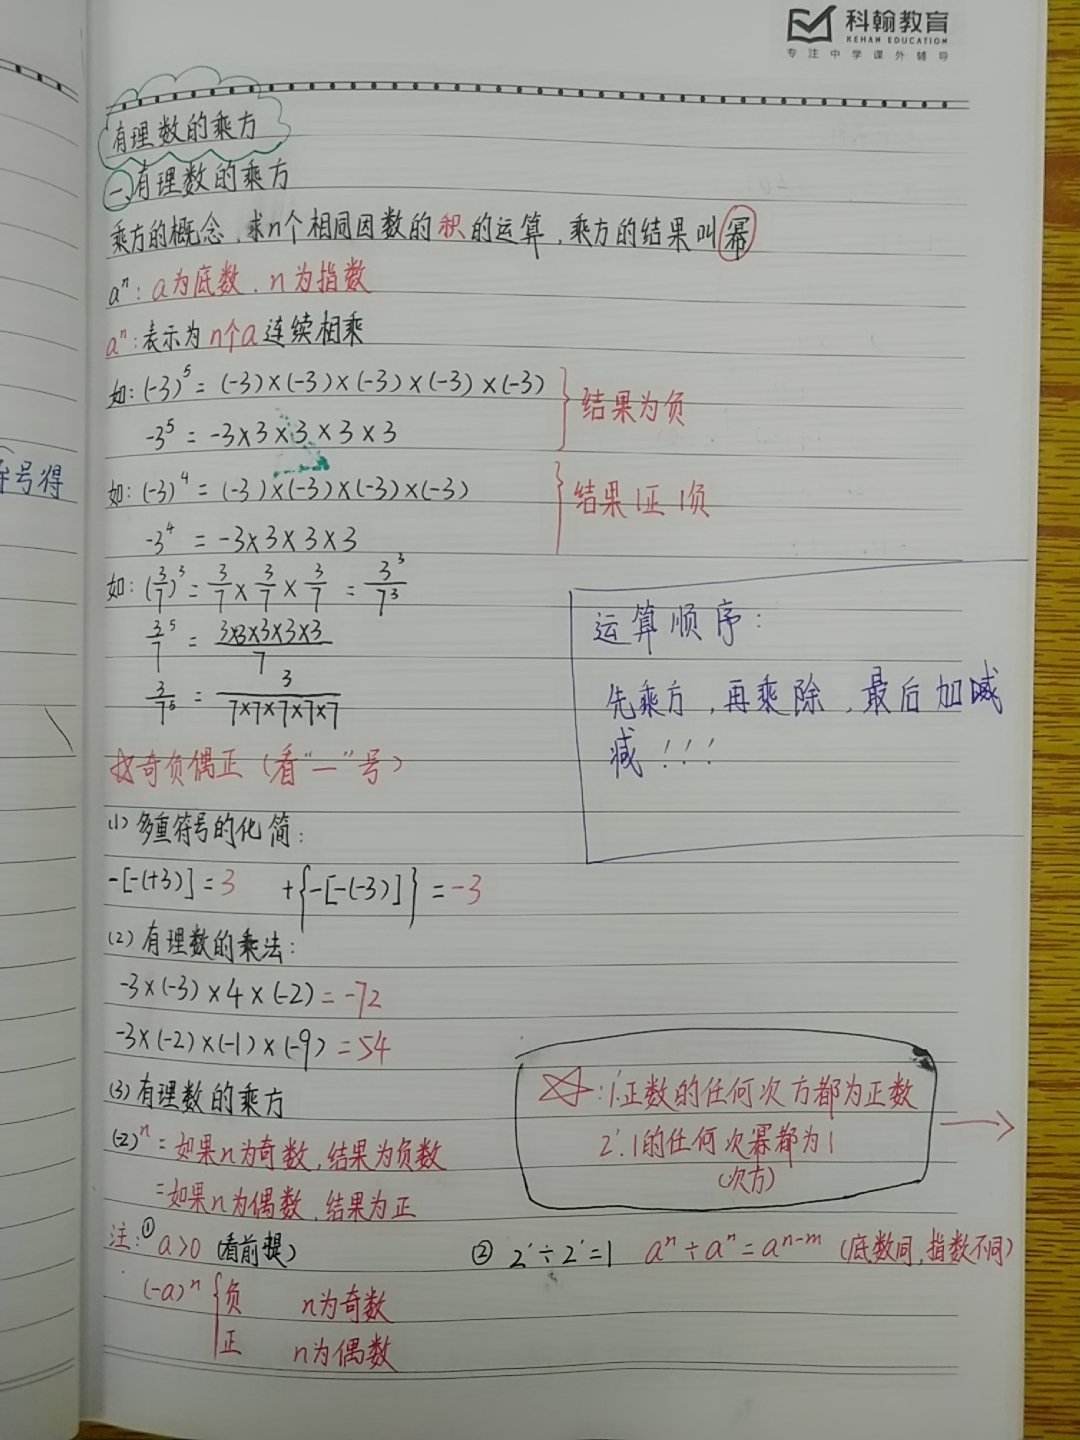 科翰教育
KEHAN EDUCATION
专注中学课外辅导
号得
有理数的乘方
一、有理数的乘方
乘方的概念,求n个相同因数的积的运算,乘方的结果叫幂
aⁿ:a为底数,n为指数
aⁿ:表示为n个a连续相乘
如:(-3)⁵=(-3)×(-3)×(-3)×(-3)×(-3)
-3⁵=-3×3×3×3×3
结果为负
如:(-3)⁴=(-3)×(-3)×(-3)×(-3)
-3⁴=-3×3×3×3
结果1正1负
如:(3/7)³=3/7×3/7×3/7=3³/7³
3⁵/7=3×3×3×3×3/7
3/7⁵=3/7×7×7×7×7
运算顺序:
先乘方,再乘除,最后加减
减!!!
奇负偶正(看“—”号)
(1)多重符号的化简:
-[-(+3)]=3 +{-[-(-3)]}=-3
(2)有理数的乘法:
-3×(-3)×4×(-2)=-72
-3×(-2)×(-1)×(-9)=54
(3)有理数的乘方
(-2)ⁿ=如果n为奇数,结果为负数
=如果n为偶数,结果为正
☆:1.正数的任何次方都为正数
2.1的任何次幂都为1
(次方)
注:①a>0(看前提)
(-a)ⁿ{负 n为奇数
正 n为偶数
②2¹÷2¹=1 aⁿ÷aⁿ=aⁿ⁻ᵐ(底数同,指数不同)